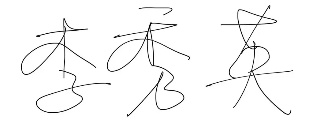 李秀英